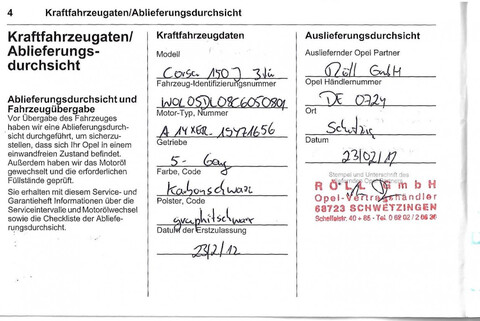 4 Kraftfahrzeugaten/Ablieferungsdurchsicht
Kraftfahrzeugaten/
Ablieferungs-
durchsicht
Ablieferungsdurchsicht und
Fahrzeugübergabe
Vor Übergabe des Fahrzeuges
haben wir eine Ablieferungsdurch-
sicht durchgeführt, um sicherzu-
stellen, dass sich Ihr Opel in einem
einwandfreien Zustand befindet.
Außerdem haben wir das Motoröl
gewechselt und die erforderlichen
Füllstände geprüft.
Sie erhalten mit diesem Service- und
Garantieheft Informationen über die
Serviceintervalle und Motorölwechsel
sowie die Checkliste der Abliefe-
rungsdurchsicht.
Kraftfahrzeugdaten
Modell
Corsa 150J 3tür
Fahrzeug-Identifizierungsnummer
W0L0SDL08C6050801
Motor-Typ, Nummer
A 14XER. 15Y71656
Getriebe
5- Gang
Farbe, Code
Karbonschwarz
Polster, Code
graphitschwarz
Datum der Erstzulassung
23/2/12
Auslieferungsdurchsicht
Ausliefernder Opel Partner
Röll GmbH
Opel Händlernummer
DE 0724
Ort
Schwtzg
Datum
23/02/12
Stempel und Unterschrift des
RÖLL GmbH
Opel-Vertragshändler
68723 SCHWETZINGEN